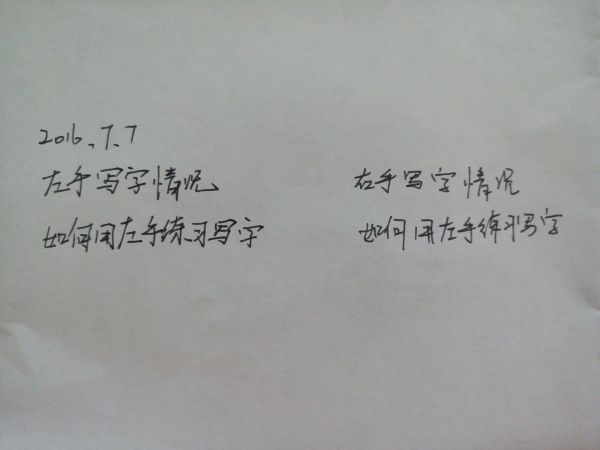 2016.7.7
左手写字情况
如何用左手练习写字
右手写字情况
如何用左手练习写字